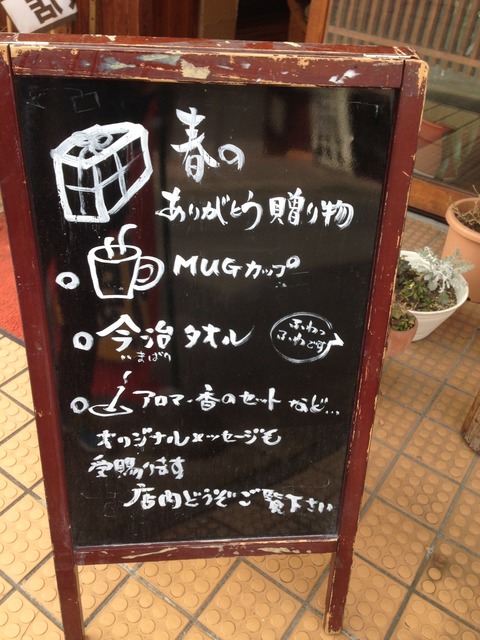 春の
ありがとう贈り物
MUGカップ
今治タオル
いまばり
ふわっ
ふわです
アロマ・香のセットなど...
オリジナルメッセージも
受賜ります
店内どうぞご覧下さい